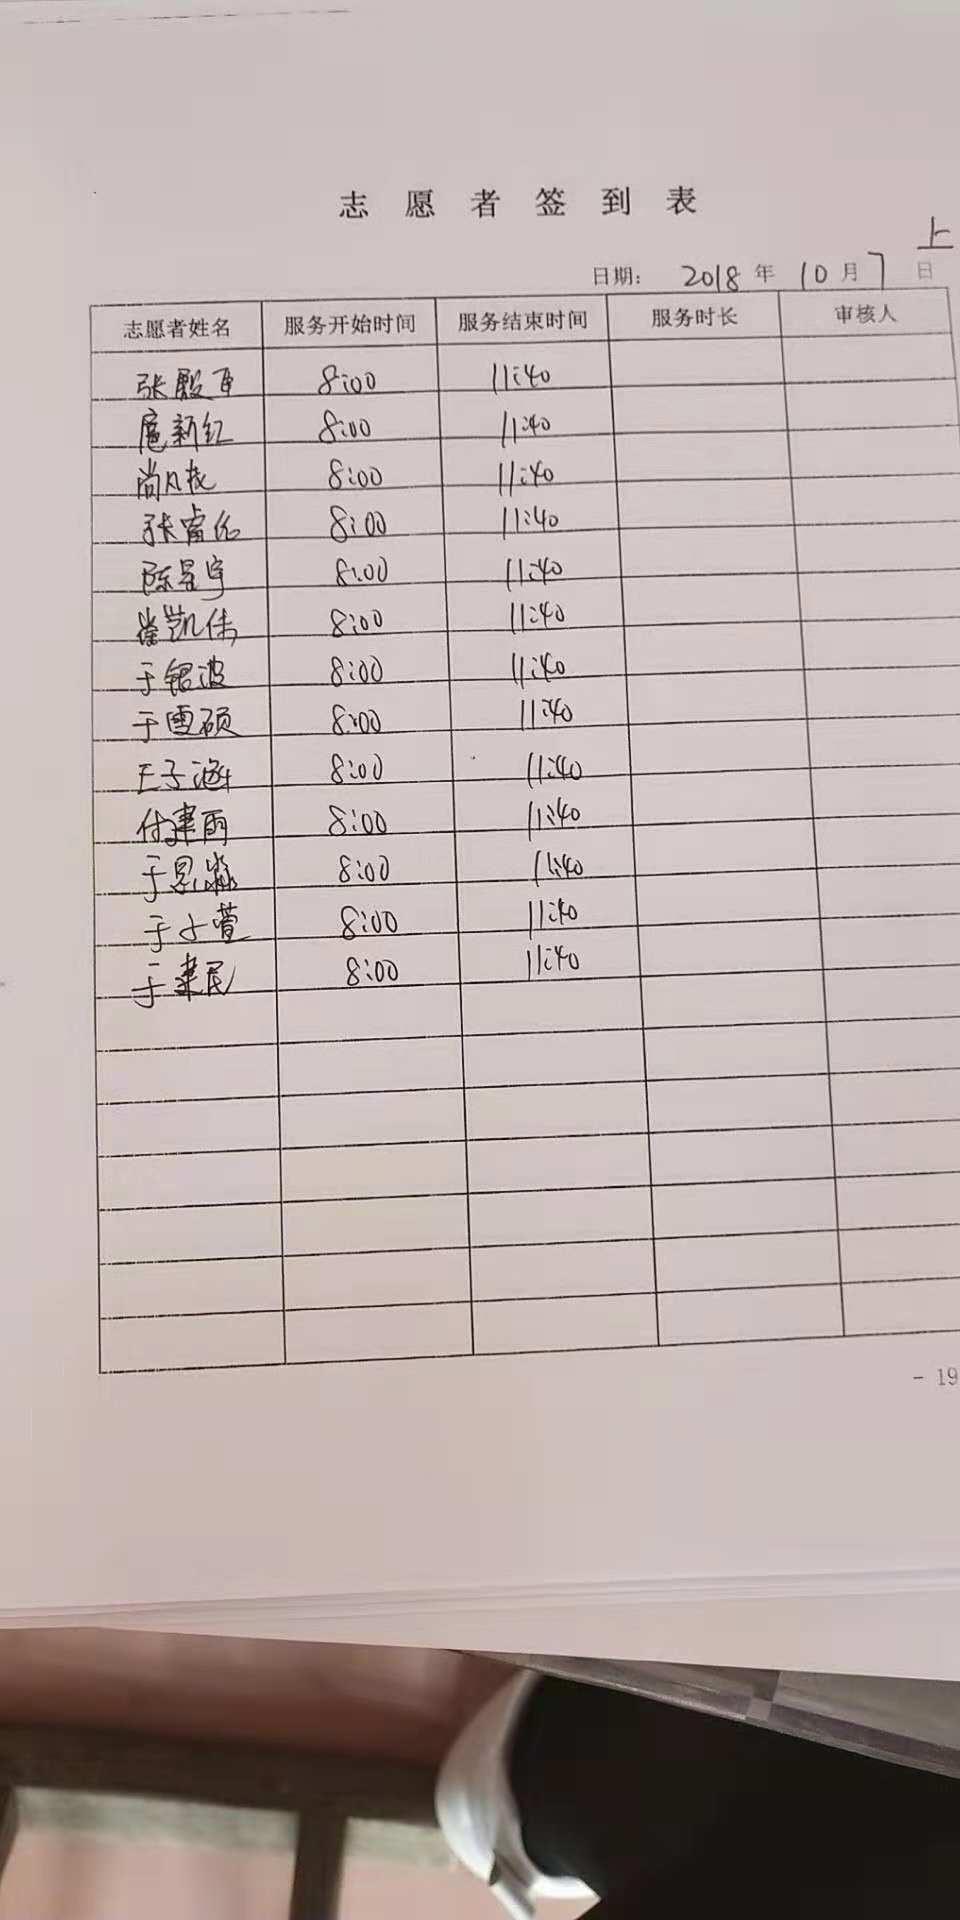 志愿者签到表
上
日期： 2018 年 10 月 7 日
志愿者姓名 服务开始时间 服务结束时间 服务时长 审核人
张殿 8:00 11:40
扈新红 8:00 11:40
尚凡 8:00 11:40
张睿 8:00 11:40
陈星宇 8:00 11:40
崔凯伟 8:00 11:40
于银波 8:00 11:40
于雪硕 8:00 11:40
王子涵 8:00 11:40
付建雨 8:00 11:40
于恩淼 8:00 11:40
于子萱 8:00 11:40
于建 8:00 11:40
- 19